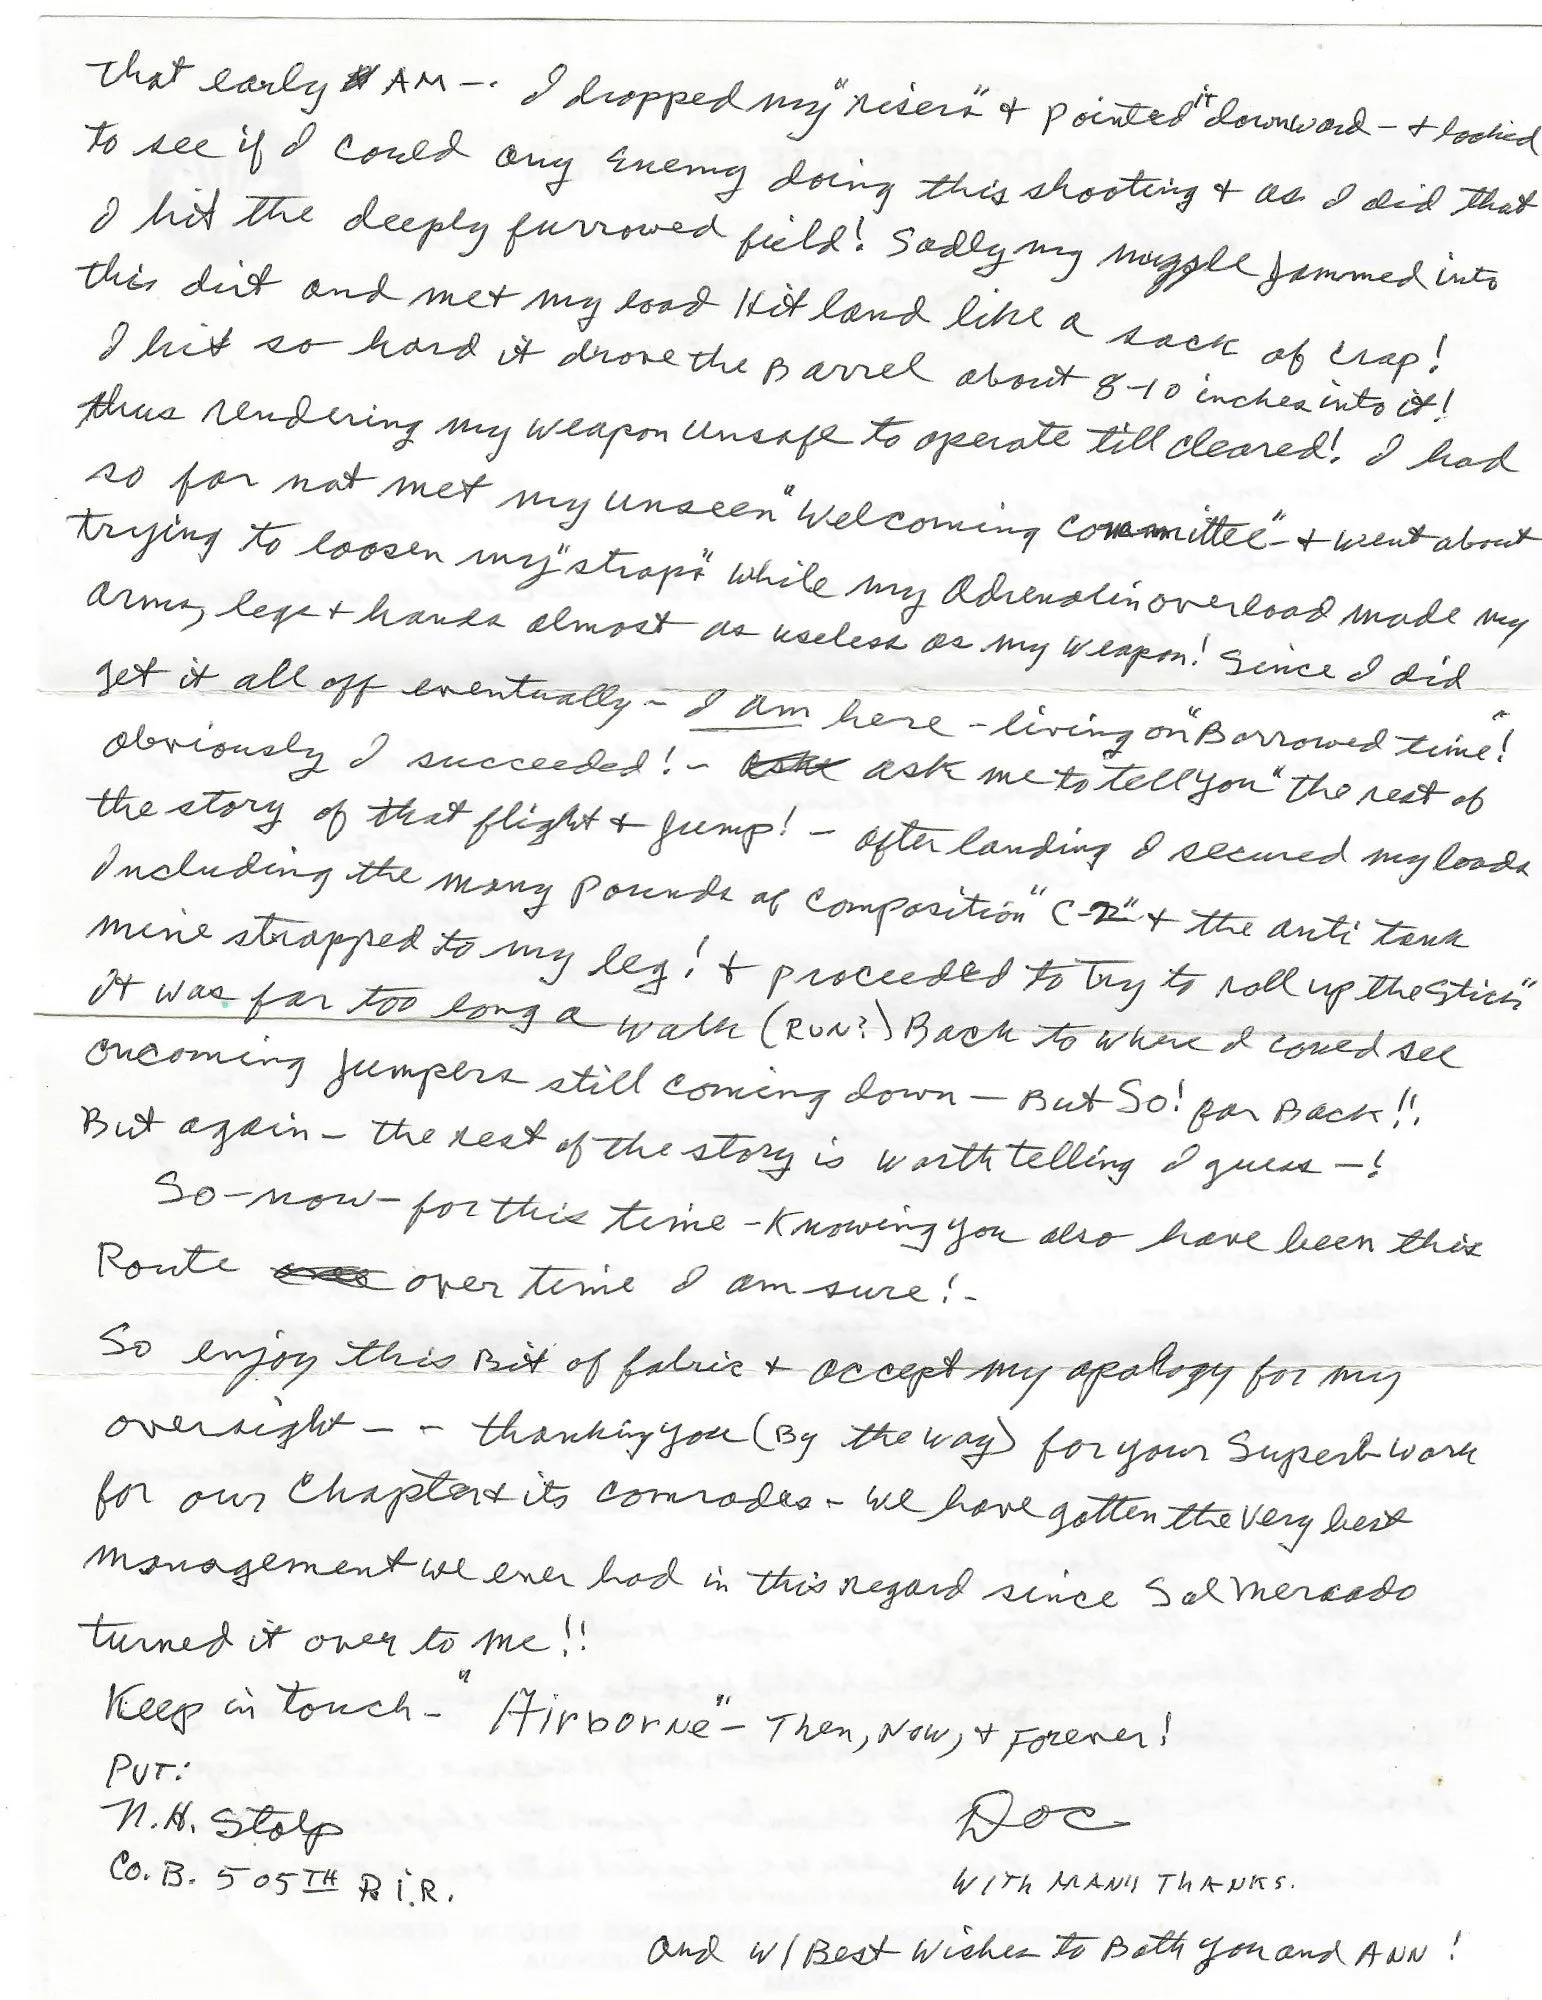 that early AM -. I dropped my "risers" & pointed it downward - & looked
to see if I could any Enemy doing this shooting & as I did that
I hit the deeply furrowed field! Sadly my muzzle jammed into
this dirt and met my load Hit land like a sack of crap!
I hit so hard it drove the Barrel about 8-10 inches into it!
thus rendering my weapon unsafe to operate till cleared! I had
so far not met my unseen "Welcoming Committee" - & went about
trying to loosen my "straps" while my Adrenalin overload made my
arms, legs & hands almost as useless as my weapon! Since I did
get it all off eventually - I am here - living on "Borrowed time"!
obviously I succeeded! - ask me to tell you "the rest of
the story of that flight & jump! - after landing I secured my loads
Including the many pounds of Composition "C-2" & the anti tank
mine strapped to my leg! & proceeded to try to roll up the stick"
It was far too long a walk (RUN?) Back to where I could see
oncoming jumpers still coming down - But So! far Back!!
But again - the rest of the story is worth telling I guess -!
So - now - for this time - Knowing you also have been this
Route over time I am sure! -
So enjoy this Bit of fabric & accept my apology for my
oversight - - thanking you (By the way) for your Superb work
for our Chapter & its comrades - we have gotten the very best
management we ever had in this regard since Sal Mercado
turned it over to me!!
Keep in touch - "Airborne" - Then, Now, & Forever!
PVT:
N.H. Stolp
Co. B. 505TH P.I.R.
Doc
WITH MANY THANKS.
and w/Best Wishes to Both you and ANN!